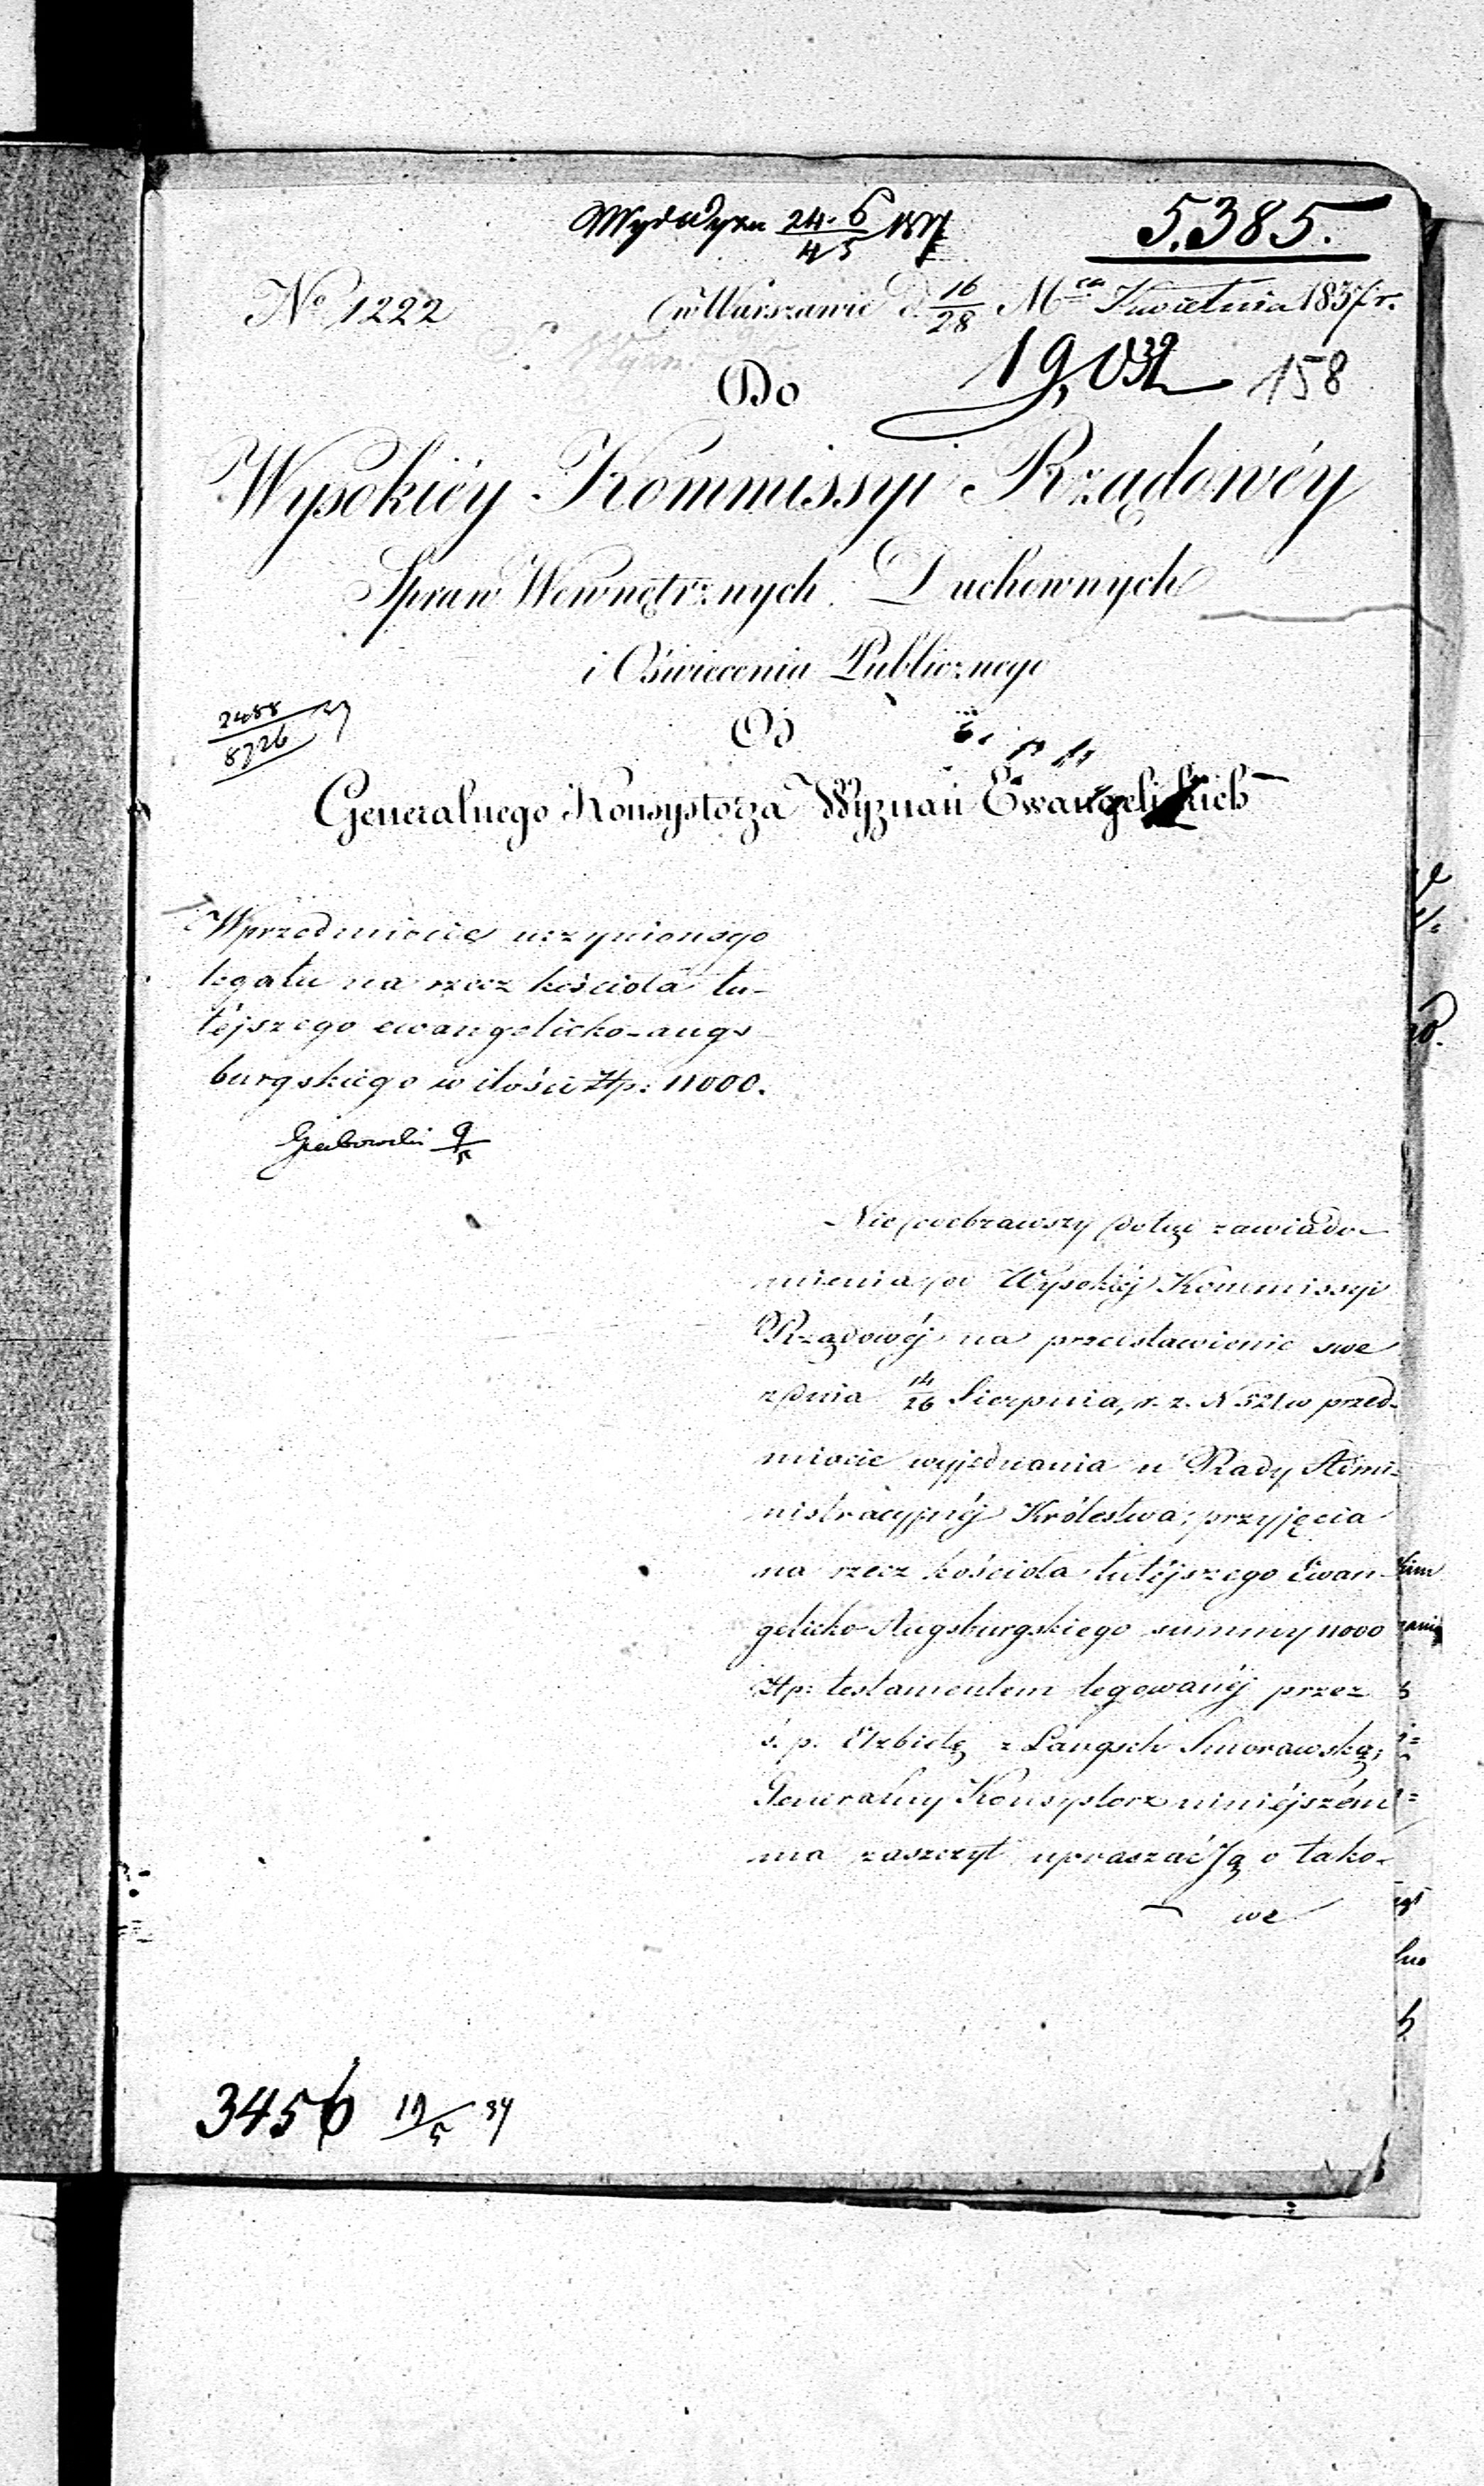 5.385.
24/4 6/5 1837
No 1222
w Warszawie d. 16/28 Mca Kwietnia 1837 r.
Do
19,032 158
Wysokiéy Kommissyi Rządowéy
Spraw Wewnętrznych Duchownych
i Oświecenia Publicznego
2488/8726
Od
Generalnego Konsystorza Wyznań Ewangelickich
W przedmiocie uczynionego
legatu na rzecz kościoła tu-
téjszego ewangelicko-augs
burgskiego w ilości Złp: 11000.
Grabowski 9/5
Nie odebrawszy dotąd zawiado-
mienia od Wysokiéj Kommissyi
Rządowéj na przedstawienie swe
z dnia 14/26 Sierpnia, r. z. N 521 w przed-
miocie wyjednania u Rady Admi-
nistracyjnéj Królestwa, przyjęcia
na rzecz kościoła tutéjszego Ewan-
gelicko Augsburgskiego summy 11000
Złp: testamentem legowanéj przez
ś. p. Elżbietę z Langsch Smorawską;
Generalny Konsystorz niniéjszém
ma zaszczyt upraszać Ją o tako-
we
3456 19/5 37